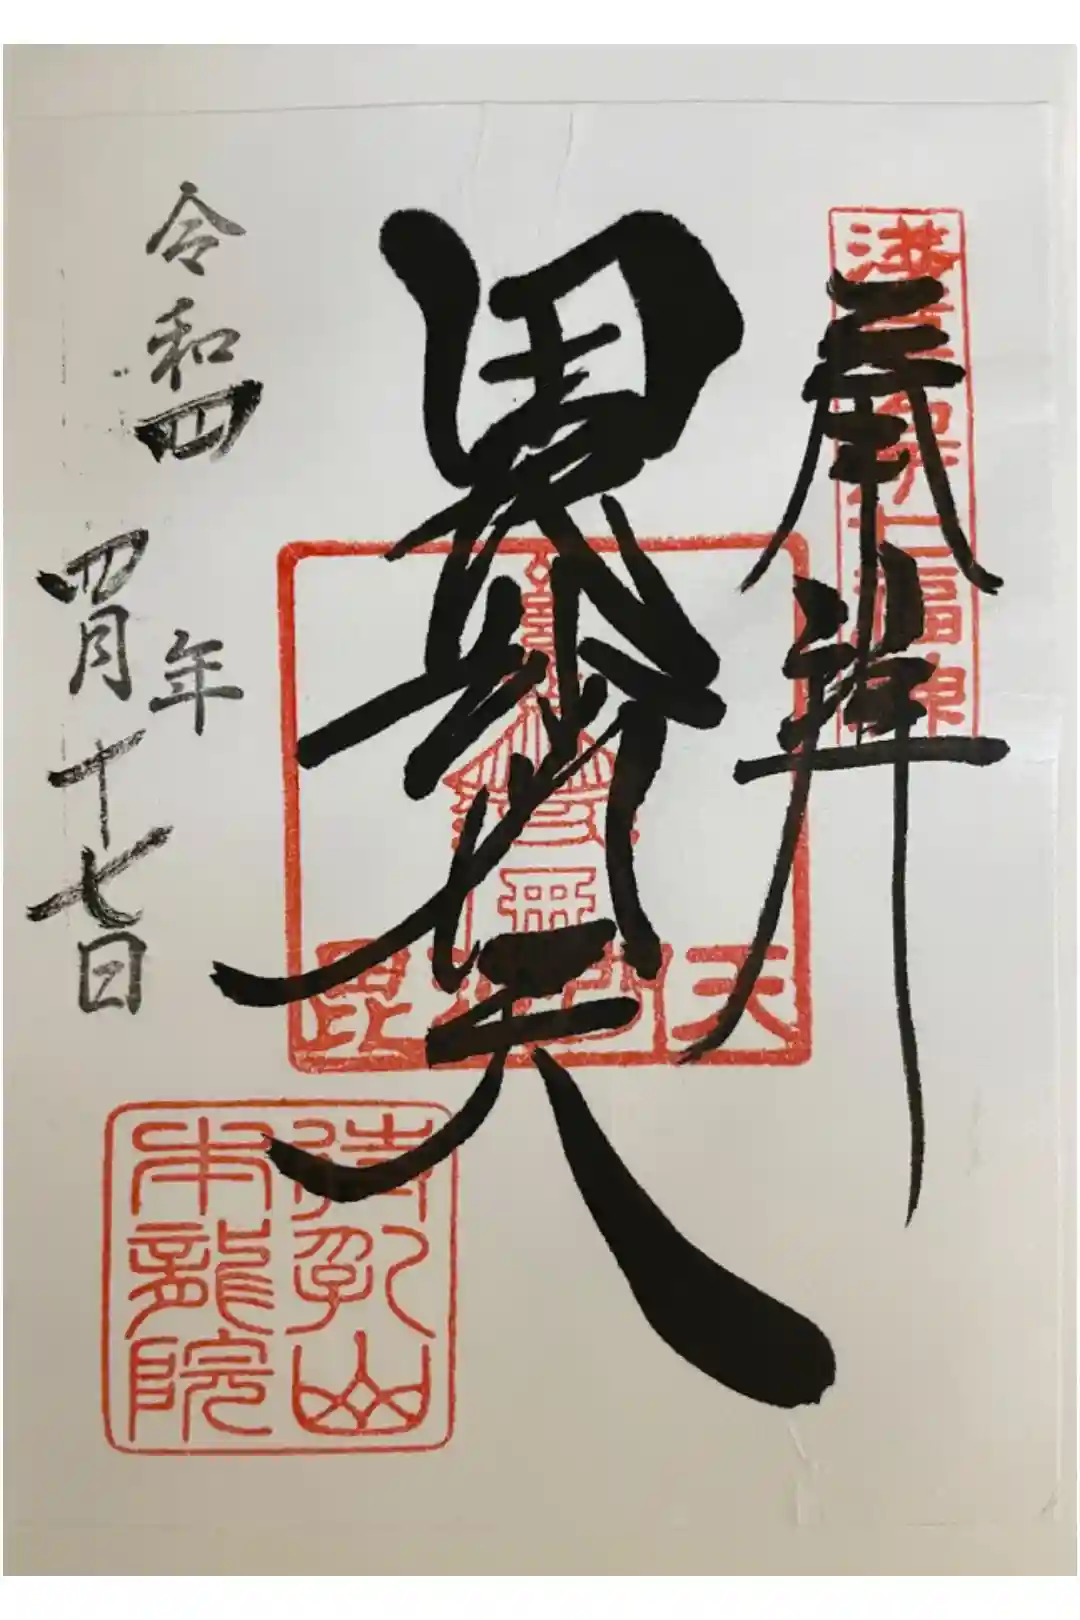 奉拝
浅草名所七福神
毘沙門天
毘沙門天
令和四年
四月十七日
待乳山
本龍院